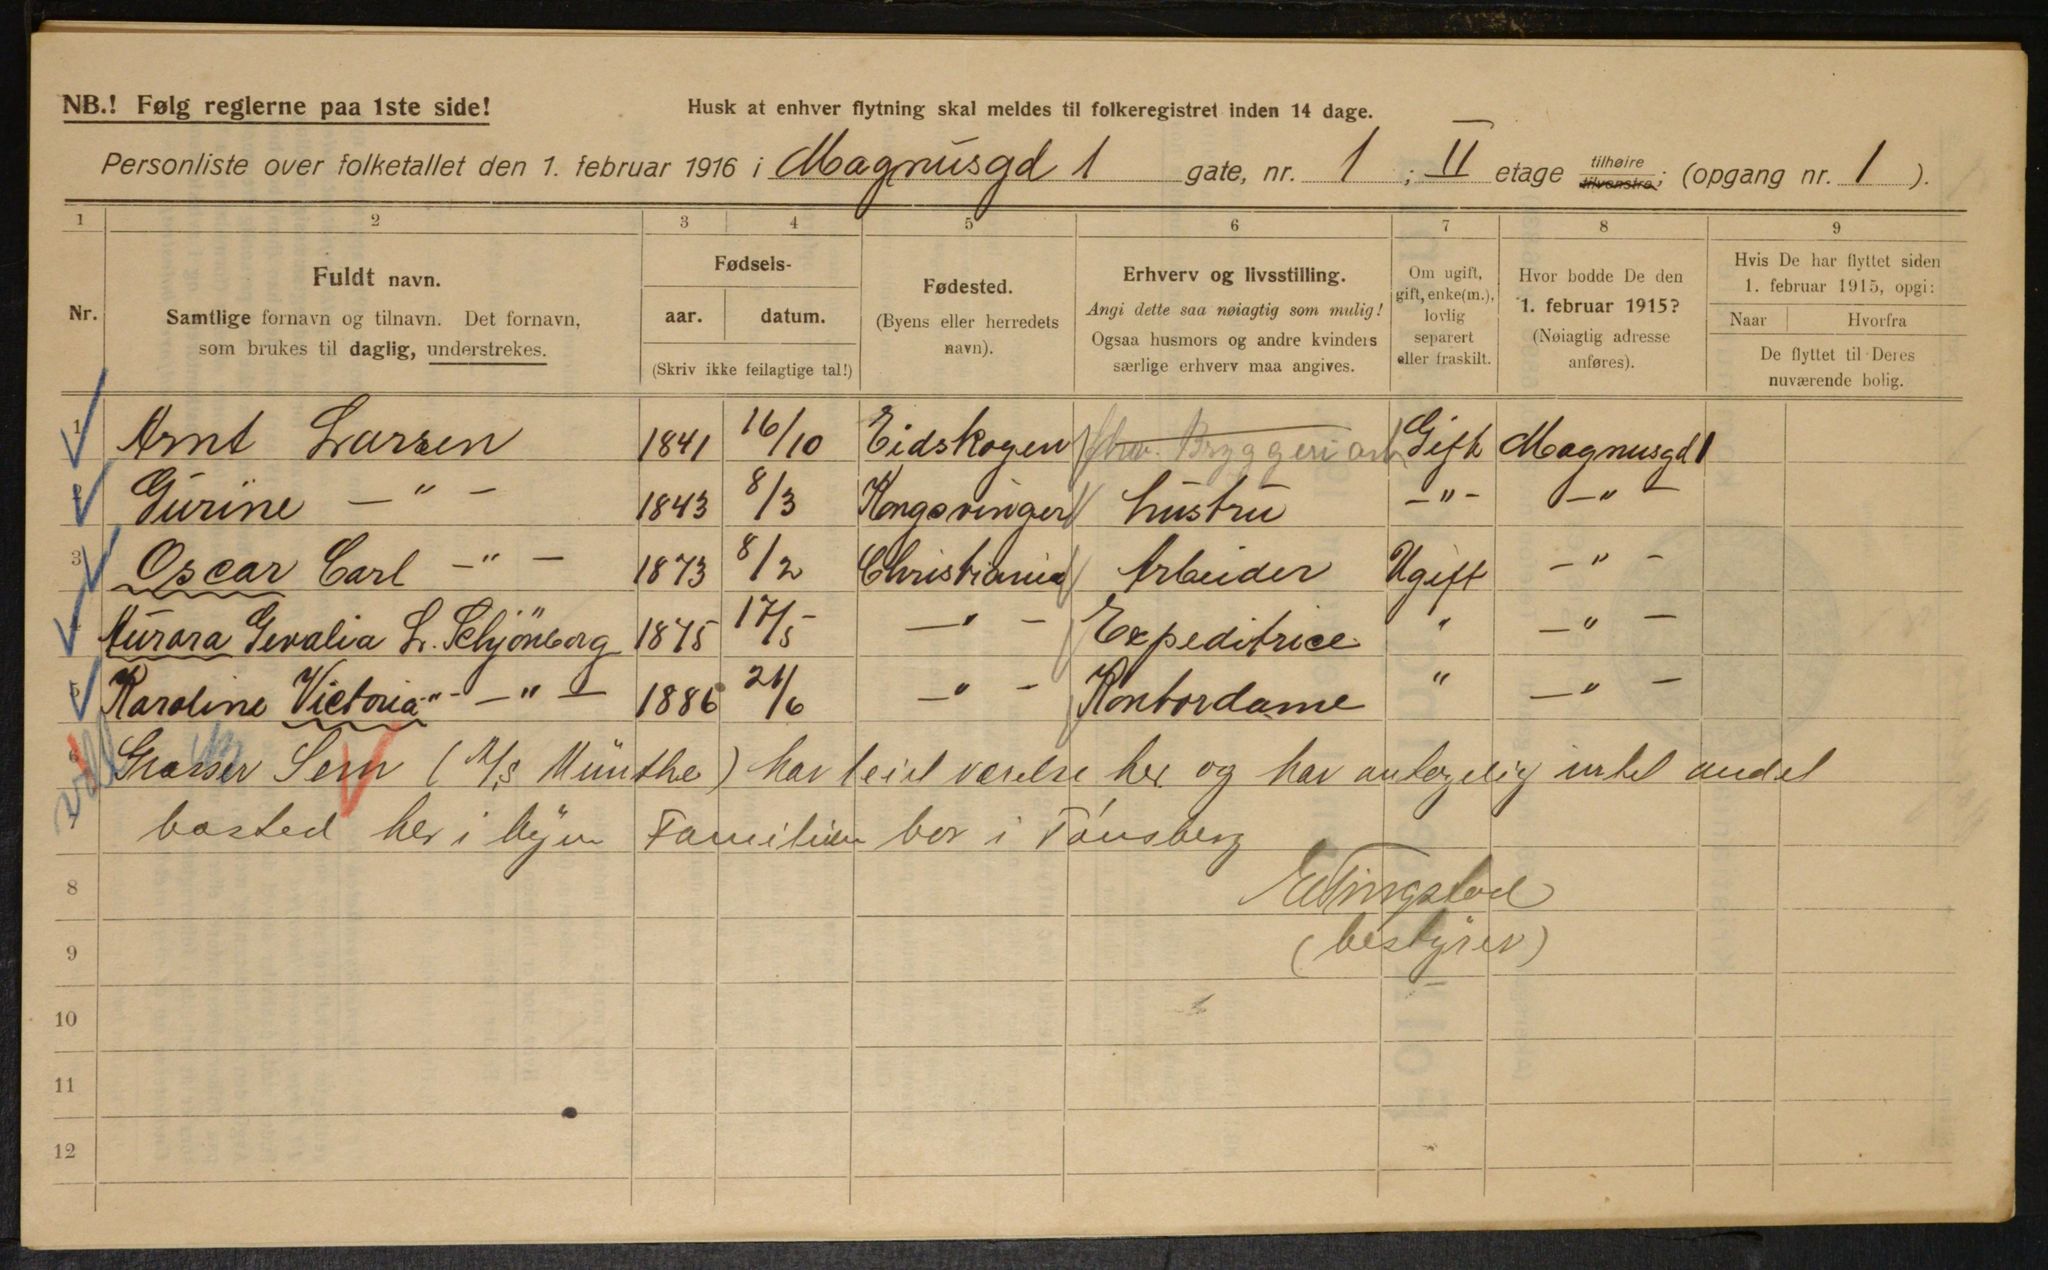 NB.! Følg reglerne paa 1ste side!
Husk at enhver flytning skal meldes til folkeregistret inden 14 dage.
Personliste over folketallet den 1. februar 1916 i Magnusgd 1 gate, nr. 1 ; II etage tilhøire tilvenstre; (opgang nr. 1 ).
1 2 3 4 5 6 7 8 9
Nr.
Fuldt navn.
Samtlige fornavn og tilnavn. Det fornavn,
som brukes til daglig, understrekes.
Fødsels-
aar. datum.
(Skriv ikke feilagtige tal!)
Fødested.
(Byens eller herredets
navn).
Erhverv og livsstilling.
Angi dette saa nøiagtig som mulig!
Ogsaa husmors og andre kvinders
særlige erhverv maa angives.
Om ugift,
gift, enke(m.),
lovlig
separert
eller fraskilt.
Hvor bodde De den
1. februar 1915?
(Nøiagtig adresse
anføres).
Hvis De har flyttet siden
1. februar 1915, opgi:
Naar Hvorfra
De flyttet til Deres
nuværende bolig.
1 Arnt Larsen 1841 16/10 Eidskogen Bryggeriarb. Gift Magnusgd 1
2 Gurine — " — 1843 8/3 Kongsvinger hustru — " — — " —
3 Oscar Carl — " — 1873 8/2 Christiania Arbeider Ugift — " —
4 Aurora Gevalia L. Schjönberg 1875 17/5 — " — Expeditrice " — " —
5 Karoline Victoria " — " — 1886 21/6 — " — Kontordame " — " —
6 Grosser Sem ( A/S Münthe ) har leiet værelse her og har antagelig intet andet
bosted her i byen Familien bor i Tønsberg
8
(bestyrer)
9
10
11
12